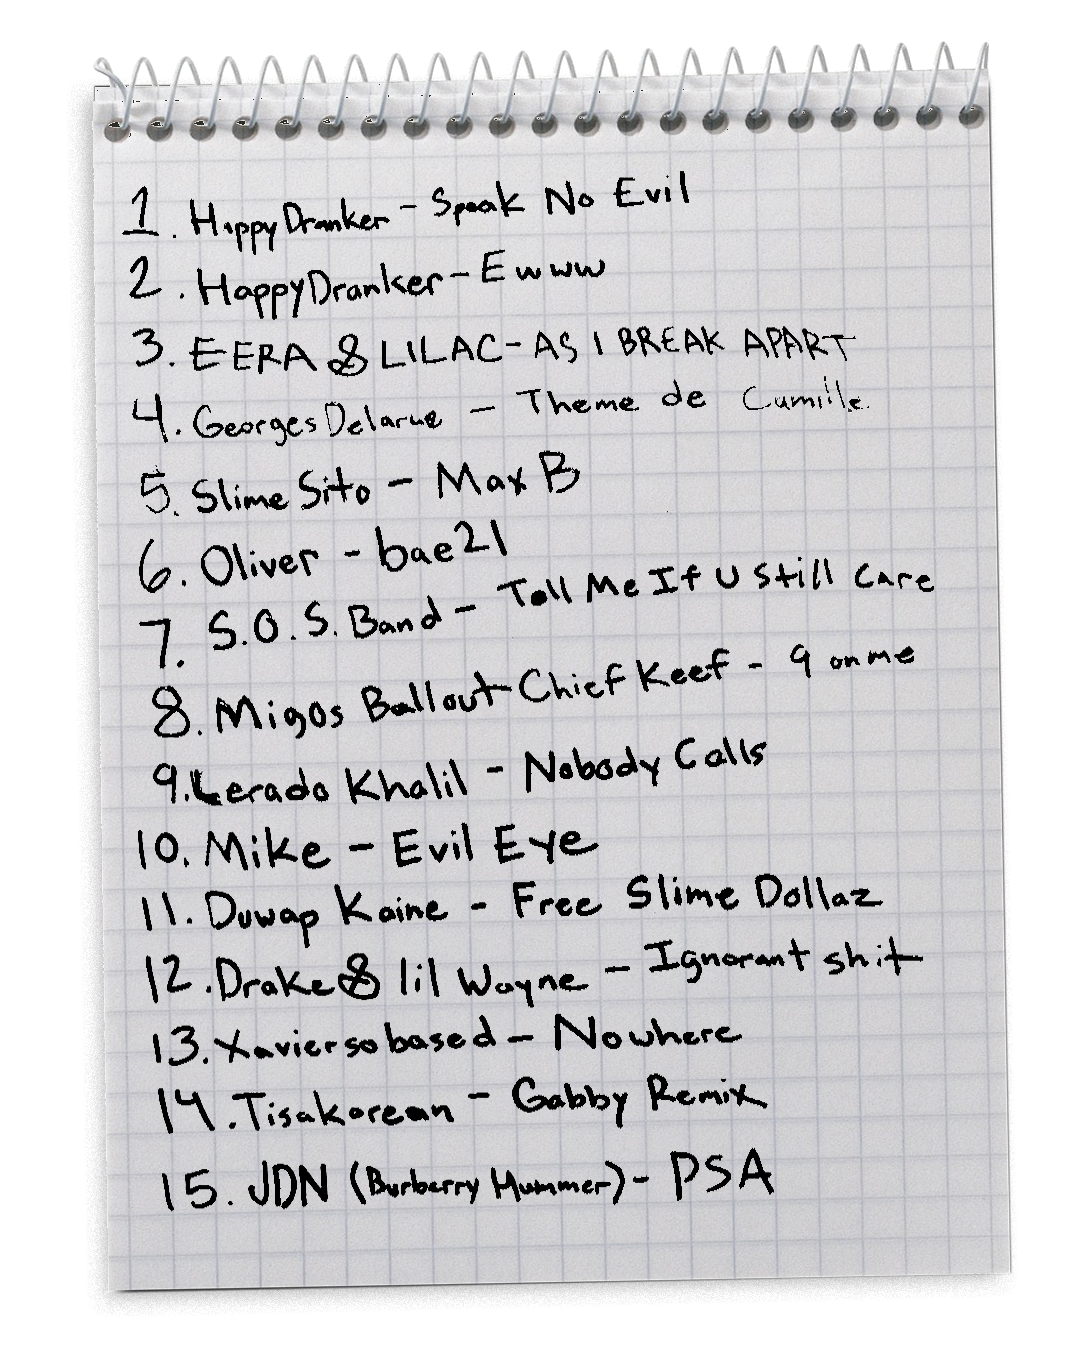 1. HappyDranker - Speak No Evil
2. HappyDranker - Ewww
3. E-ERA & LILAC - AS I BREAK APART
4. Georges Delarue - Theme de Camille
5. Slime Sito - Max B
6. Oliver - bae21
7. S.O.S. Band - Tell Me If U Still Care
8. Migos Ballout Chief Keef - 9 on me
9. Lerado Khalil - Nobody Calls
10. Mike - Evil Eye
11. Duwap Kaine - Free Slime Dollaz
12. Drake & lil Wayne - Ignorant shit
13. Xaviersobased - Nowhere
14. Tisakorean - Gabby Remix
15. JDN (Burberry Hummer) - PSA